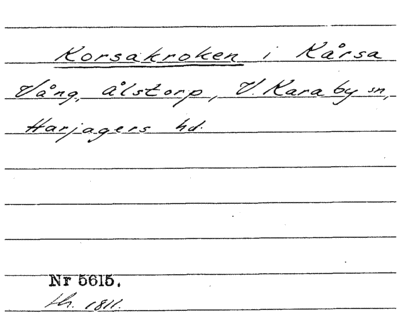 Korsakroken i Kårsa
Vång, Ålstorp, V. Karaby sn,
Harjagers hd.
Nr 5615.
1811.